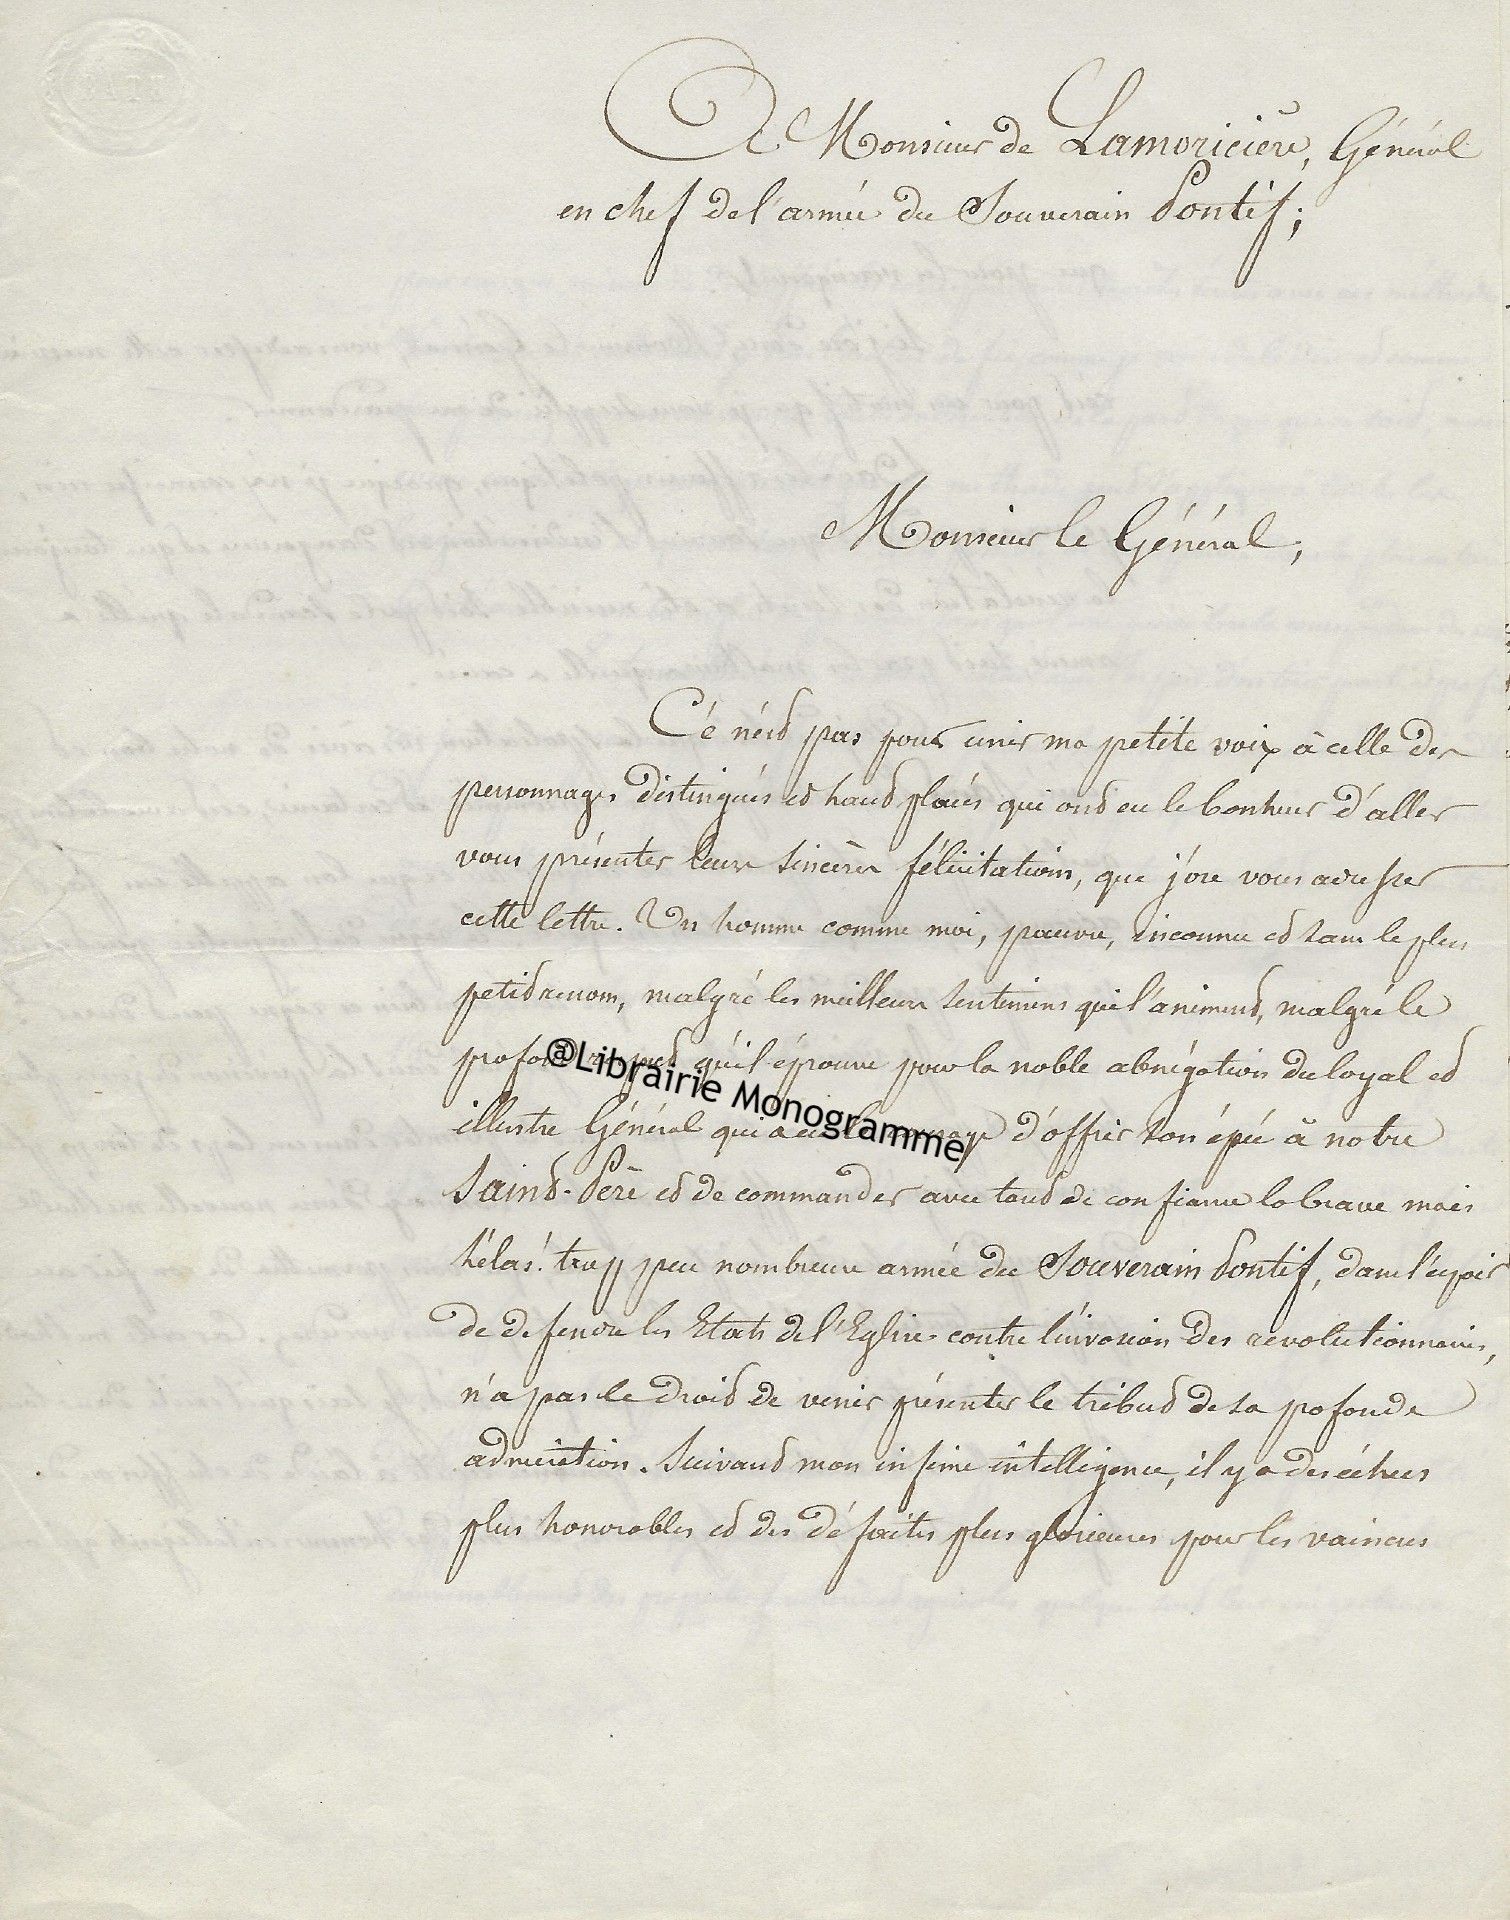 A Monsieur de Lamoricière, Général
en chef de l'armée du Souverain Pontif;
Monsieur le Général,
Cé n'est pas pour unir ma petite voix à celle des
personnages distingués et haut placés qui ont eu le bonheur d'aller
vous présenter leurs sincères félicitations, que j'ose vous adresser
cette lettre. Un homme comme moi, pauvre, inconnu et sans le plus
petit renom, malgré les meilleurs sentimens qui l'animent, malgré le
profond respect qu'il éprouve pour la noble abnégation du loyal et
illustre Général qui a eu le courage d'offrir son épée à notre
Saint-Père et de commander avec tant de confiance la brave mais
hélas! trop peu nombreuse armée du Souverain Pontif, dans l'espoir
de defendre les Etats de l'Eglise contre l'invasion des revolutionnaires,
n'a pas le droit de venir présenter le tribut de sa profonde
admiration. Suivant mon infime intelligence, il y a des échecs
plus honorables et des défaites plus glorieuses pour les vaincus
@Librairie Monogramme